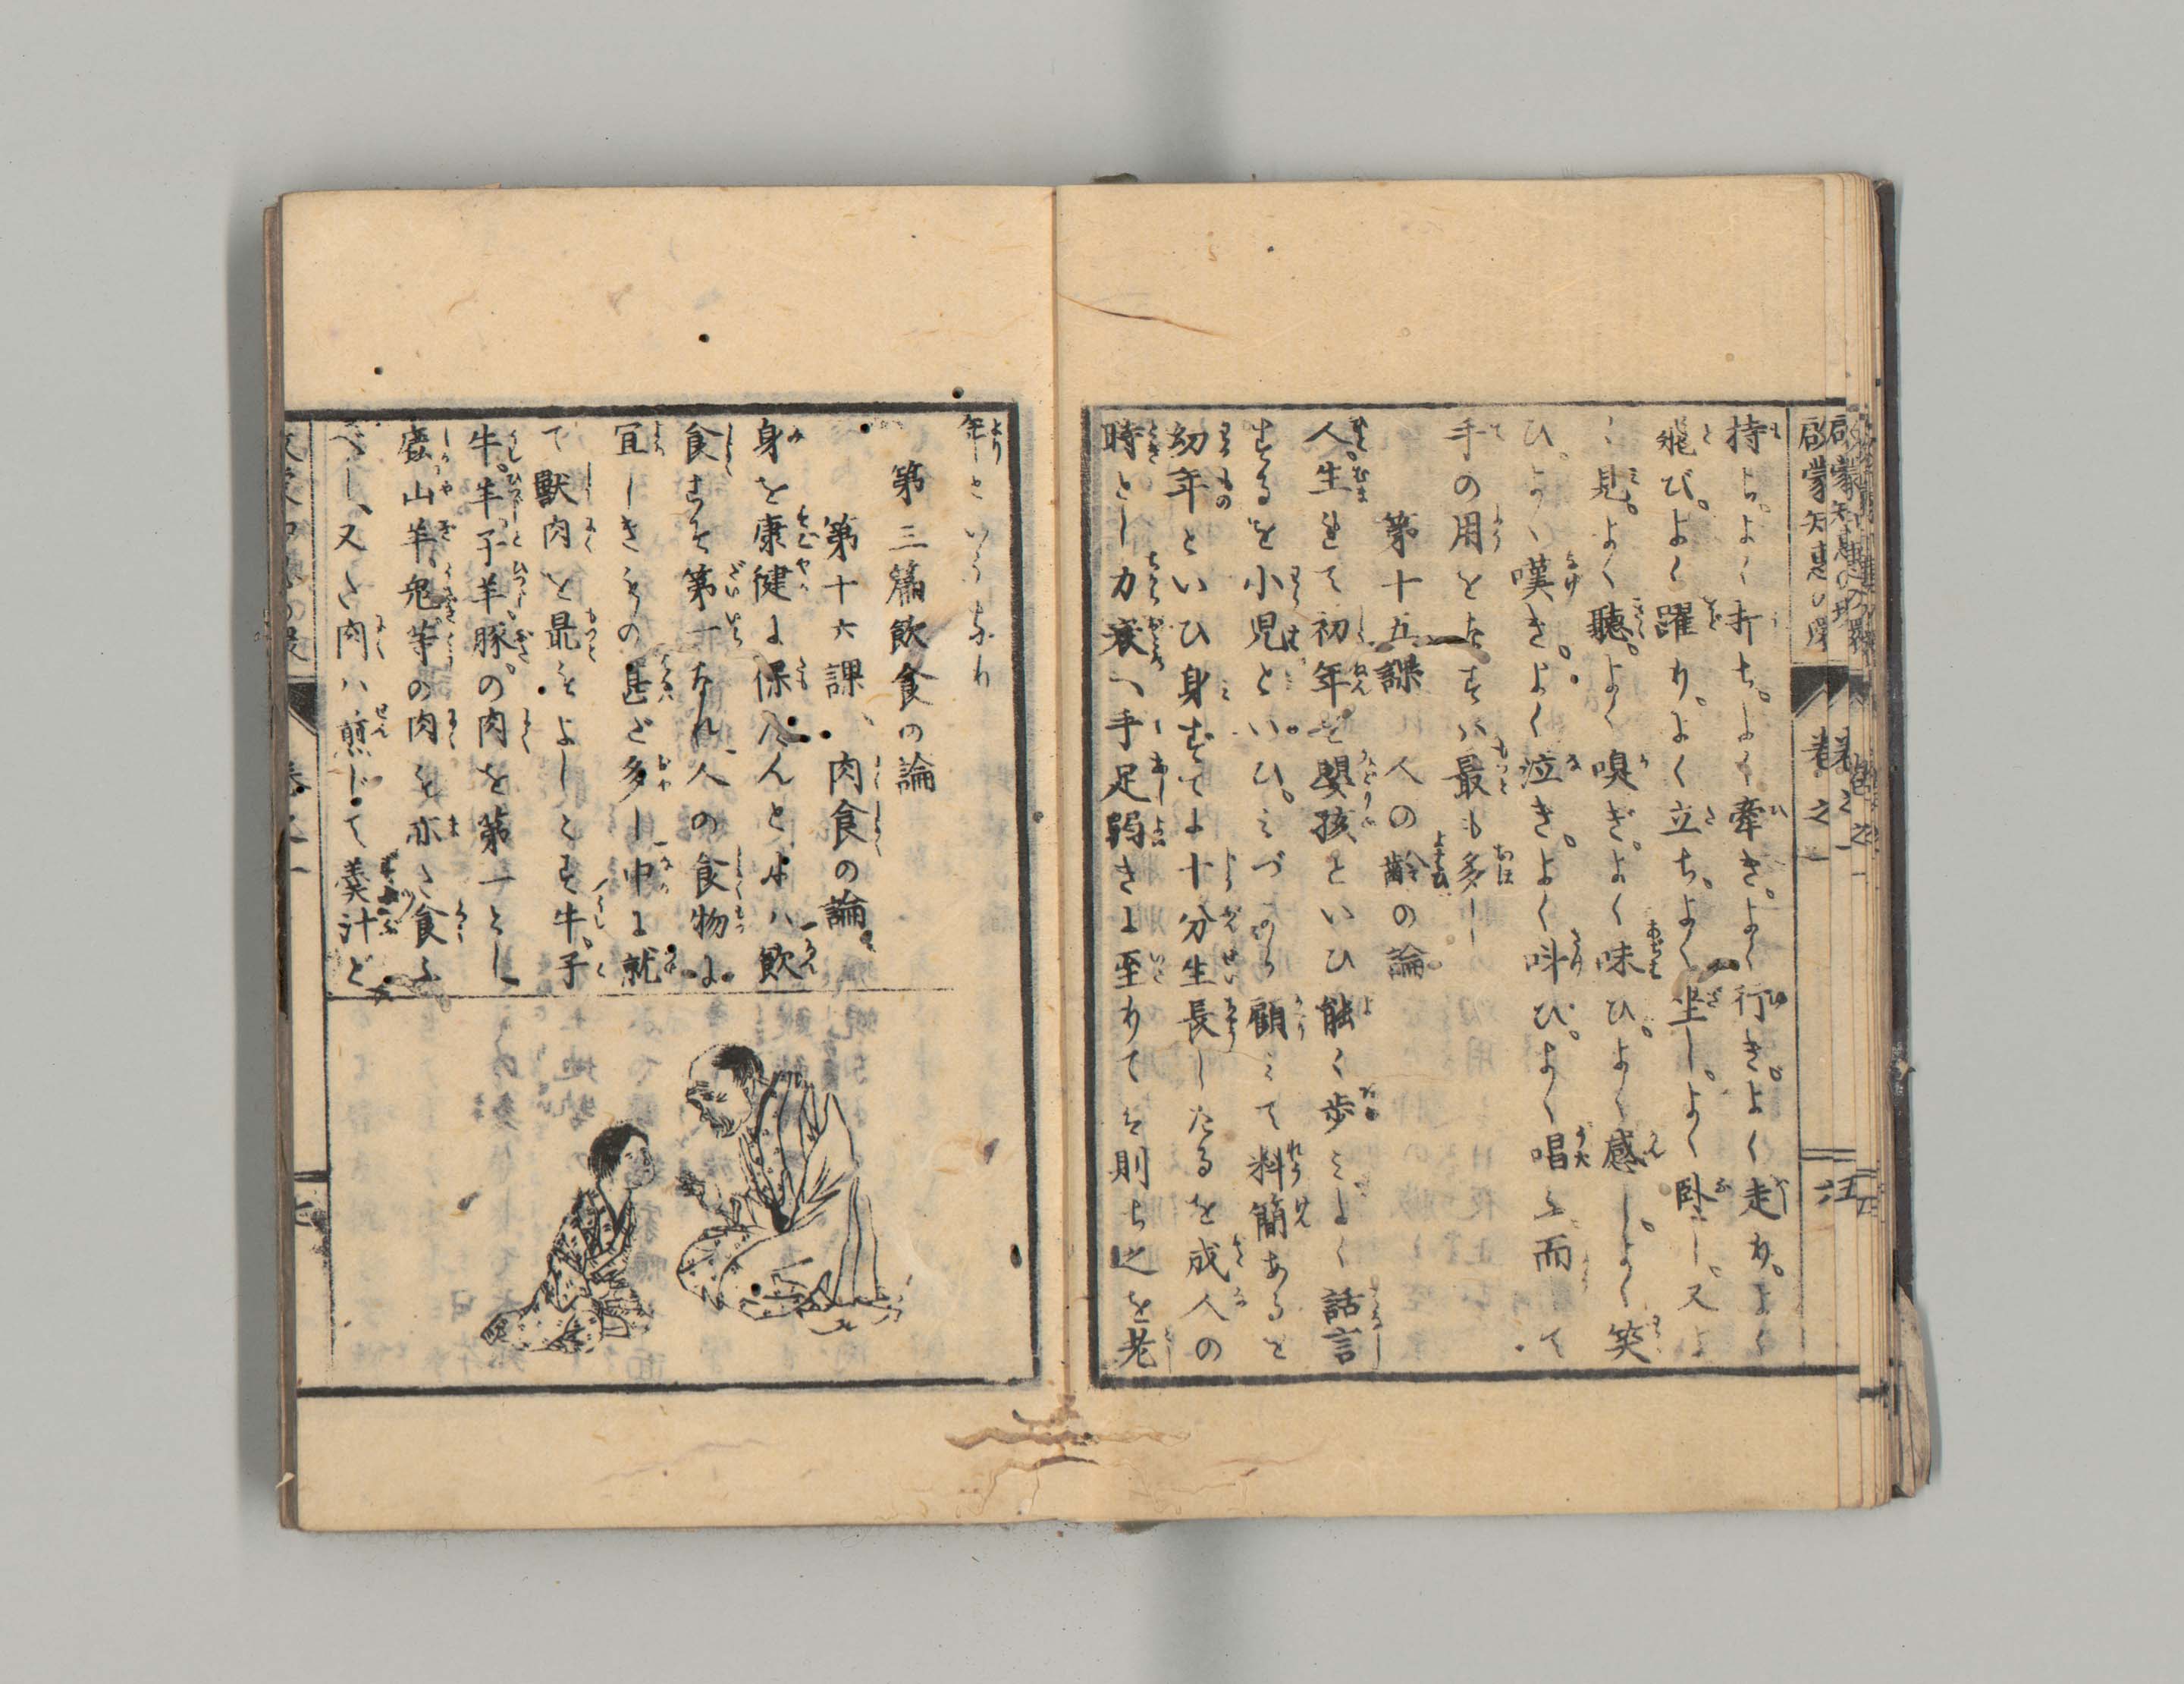 啟蒙知恵の環
巻之一
持ち。よく打ち。よく牽き。よく行き。よく走り。よく
飛び。よく躍り。よく立ち。よく坐し。よく臥し。又よ
く見。よく聴。よく嗅ぎ。よく味ひ。よく感し。よく笑
ひ。よく嘆き。よく泣き。よく呌び。よく唱ふ而して
手の用をなすハ最も多し
第十五課 人の齢の論
人生れて初年を嬰孩といひ能く歩ミよく話言
するを小児といひ。ミづから顧ミて料簡あるを
幼年といひ身すでに十分生長したるを成人の
時とし力衰へ手足弱きに至りてを則ち之を老
年といふなり
第三篇飲食の論
第十六課 肉食の論
身を康健に保ハんとよハ飲
食をそ第一なれ人の食物に
宜しきものハ甚ど多し中に就
て獣肉を最もよしとす牛。子
牛。羊。子羊。豚。の肉を第一とし
麞。山羊。兎。等の肉も亦た食ふ
べし、又た肉ハ煎じて羹汁ど